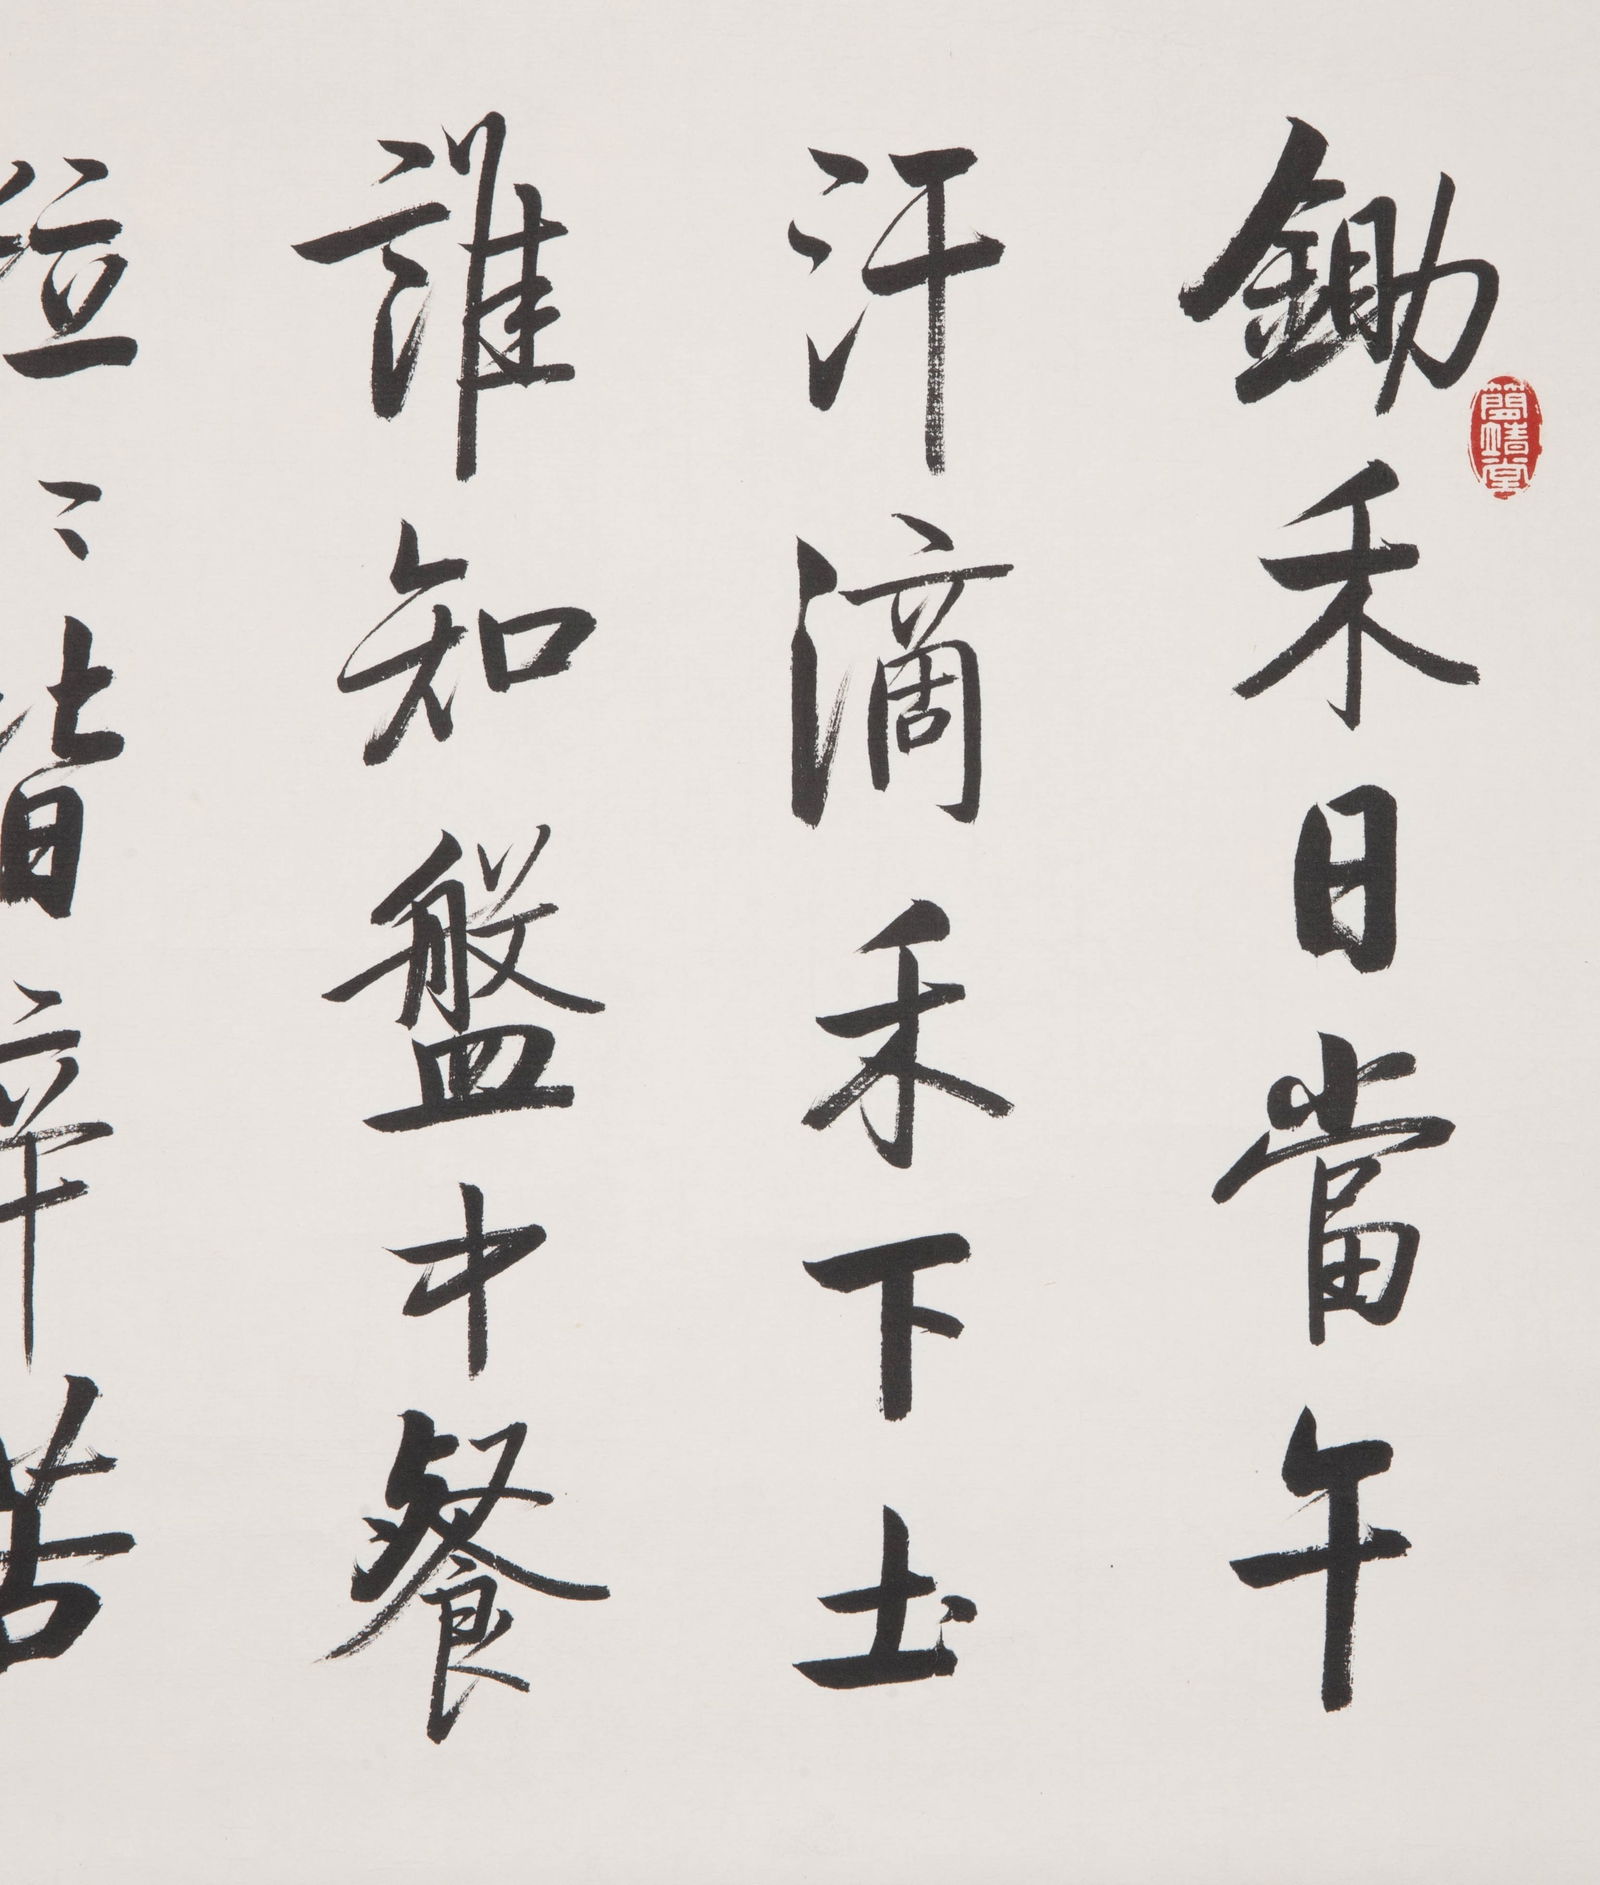 鋤禾日當午
汗滴禾下土
誰知盤中餐
粒〻皆辛苦
簡靖堂